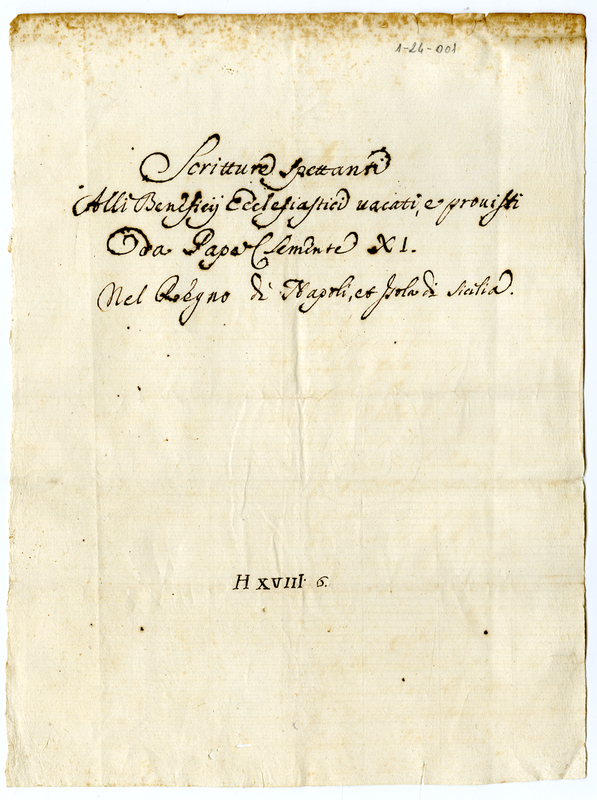 1-24-001
Scritture spettanti
Alli Beneficij Ecclesiastici vacati, e provisti
Da Papa Clemente XI.
Nel Regno di Napoli, et Isola di Sicilia.
H XVIII. 6.